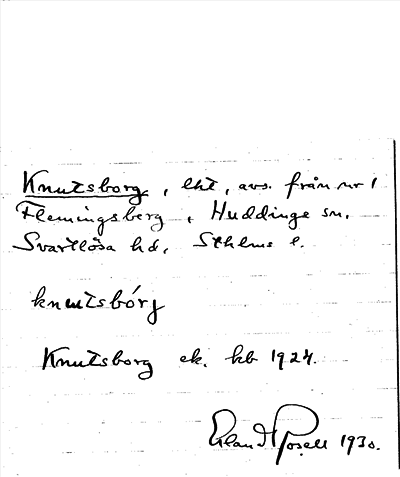 Knutsborg, lht, avs. från nr 1
Flemingsberg, Huddinge sn,
Svartlösa hd, Sthlms l.
knutsbórj
Knutsborg ek. kb 1924.
Erland Rosell 1930.